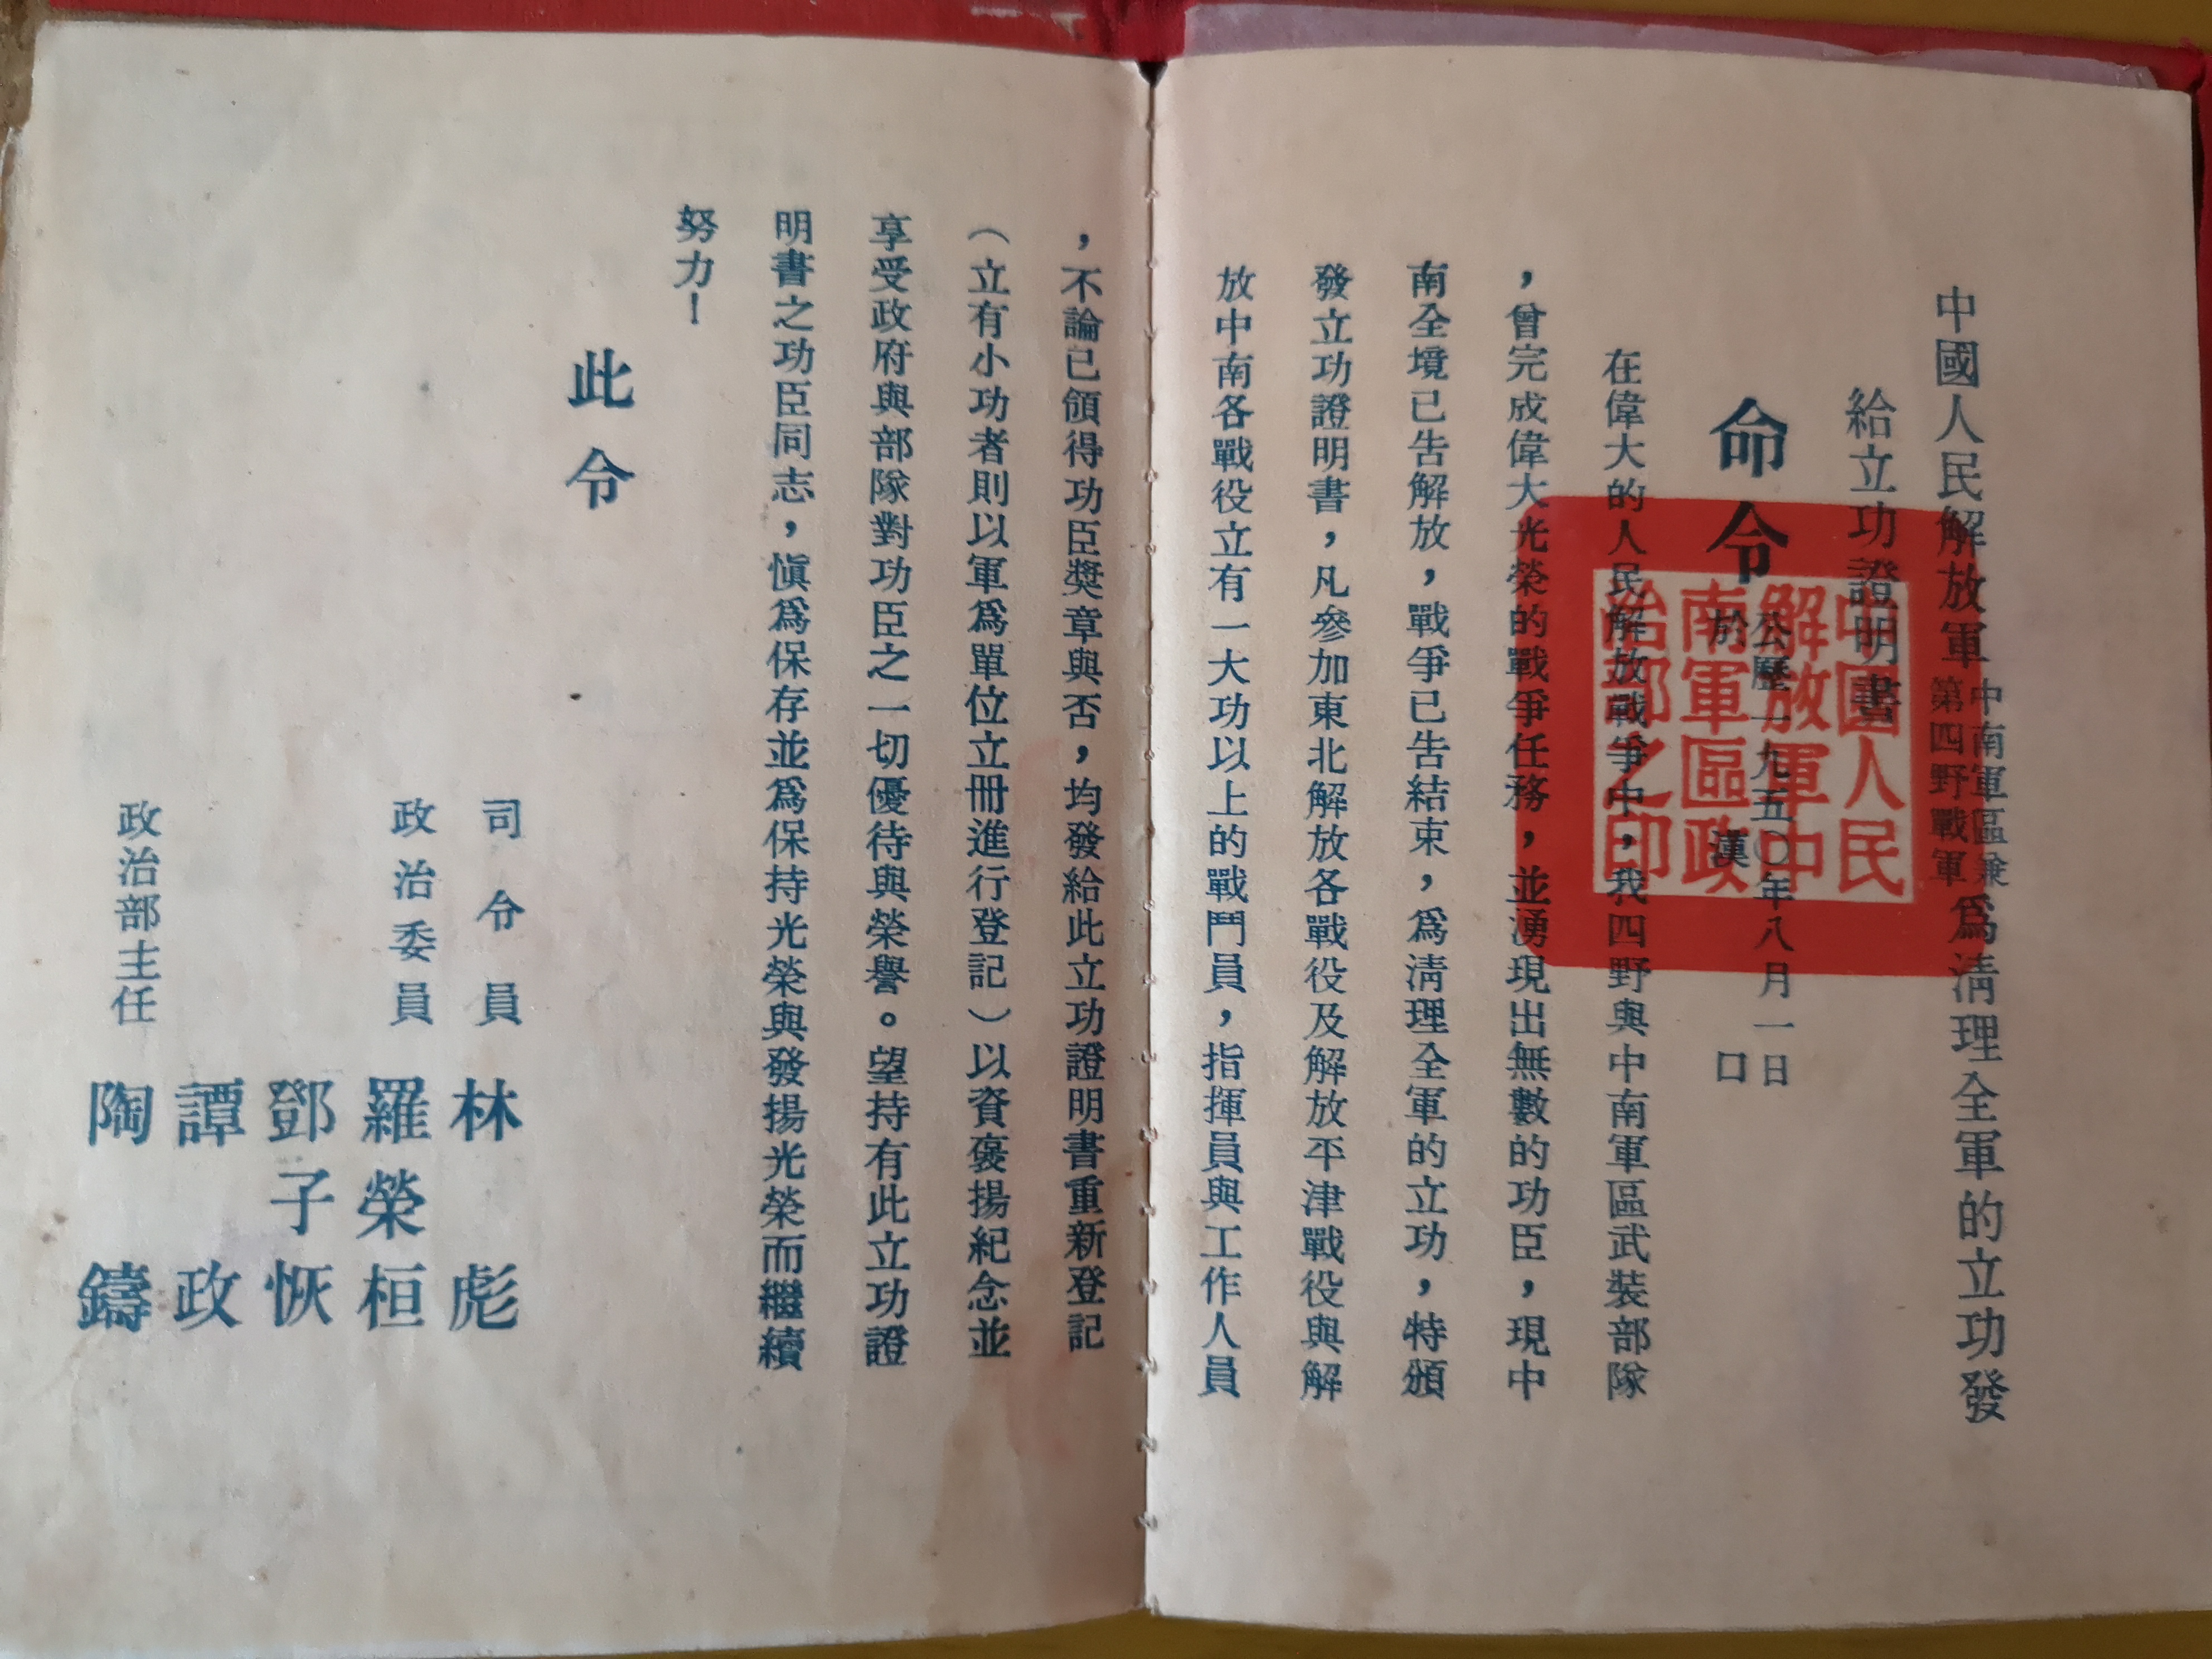 中國人民解放軍中南軍區兼第四野戰軍爲清理全軍的立功發
給立功證明書
命令
公歷一九五〇年八月一日
於漢口
在偉大的人民解放戰爭中，我四野與中南軍區武裝部隊
，曾完成偉大光榮的戰爭任務，並湧現出無數的功臣，現中
南全境已告解放，戰爭已告結束，爲清理全軍的立功，特頒
發立功證明書，凡參加東北解放各戰役及解放平津戰役與解
放中南各戰役立有一大功以上的戰鬥員，指揮員與工作人員
，不論已領得功臣獎章與否，均發給此立功證明書重新登記
（立有小功者則以軍爲單位立冊進行登記）以資褒揚紀念並
享受政府與部隊對功臣之一切優待與榮譽。望持有此立功證
明書之功臣同志，愼爲保存並爲保持光榮與發揚光榮而繼續
努力！
此令
司令員 林彪
政治委員 羅榮桓
鄧子恢
譚政
政治部主任 陶鑄
中國人民
解放軍中
南軍區政
治部之印